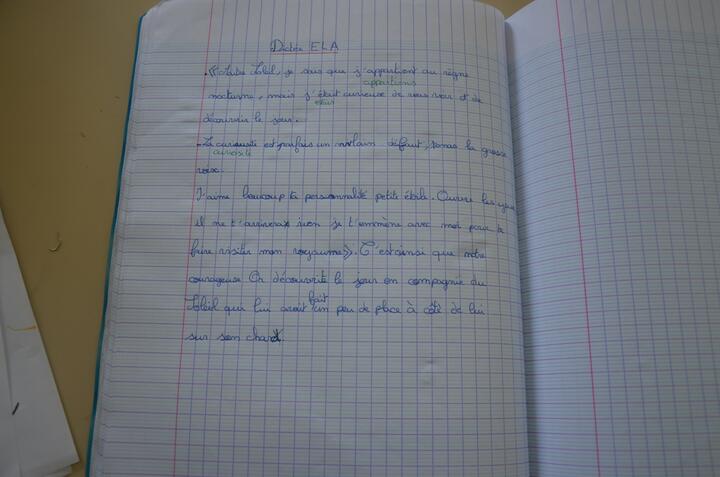 Dictée ELA
- « Maître Soleil, je sais que j'appartient au règne
appartiens
nocturne, mais j'était curieuse de vous voir et de
étais
découvrir le jour.
- La curieusité est parfois un vilain défaut, tonna la grosse
curiosité
voix.
J'aime beaucoup ta personnalité petite étoile. Ouvre les yeux
il ne t'arrivera rien je t'emmène avec moi pour te
faire visiter mon royaume ». C'est ainsi que notre
courageuse Or découvrit le jour en compagnie du
fait
Soleil qui lui avait un peu de place à côté de lui
sur son char.